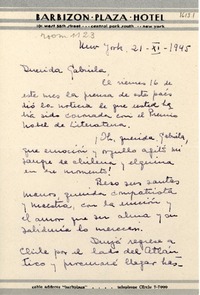 BARBIZON-PLAZA-HOTEL
101 west 58th street ... central park south ... new york
room 1123
New York, 21-XI-1945
Querida Gabriela,
El viernes 16 de
este mes la prensa de este país
dió la noticia de que usted ha
sido coronada con el Premio
Nobel de Literatura.
¡Oh, querida Gabriela,
que emoción y orgullo agitó mi
sangre de chilena y elquina
en ese momento!
Beso sus santas
manos, querida compatriota
y maestra, con la unción y
el amor que su alma y su
sabiduría lo merecen.
regreso a
Chile por el lado del Atlán-
tico y procuraré llegar has-
cable address "barbizon" telephone CIrcle 7-7000